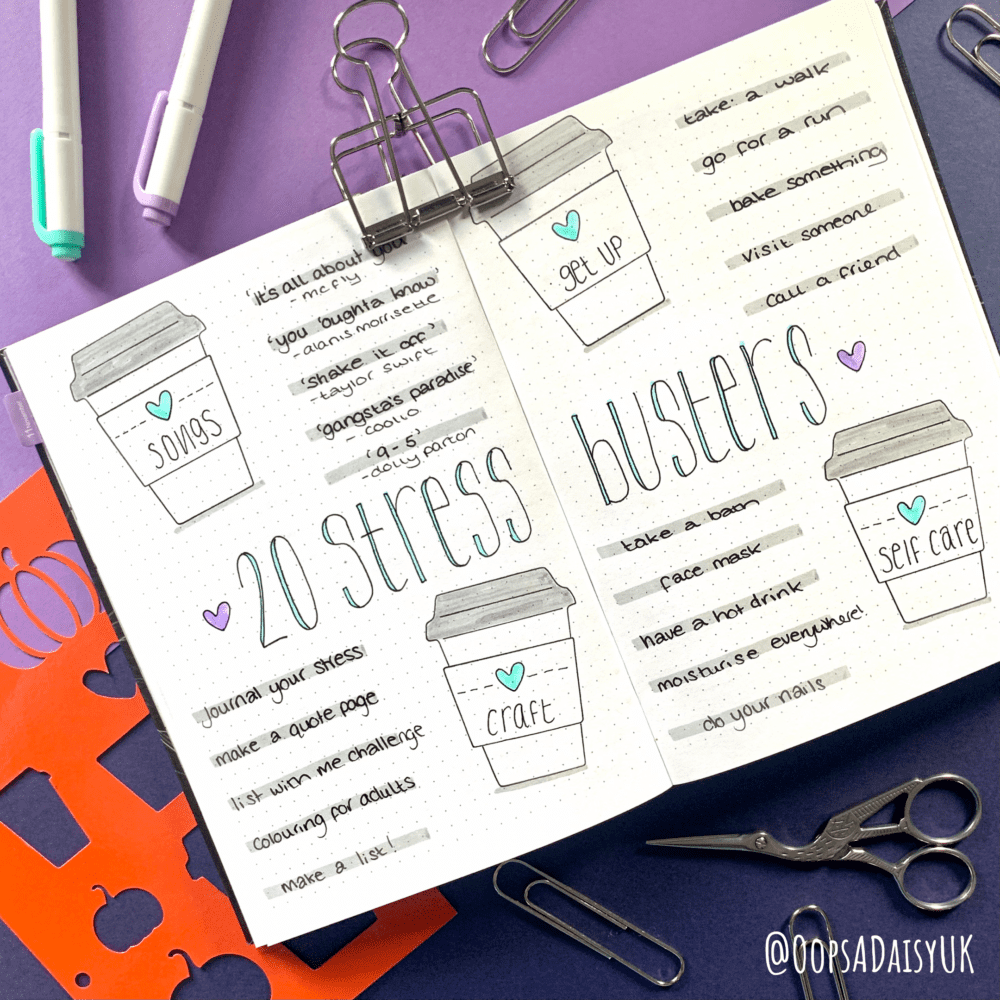 songs
'it's all about you'
- mcfly
'you 'oughta know'
- alanis morrisette
'shake it off'
- taylor swift
'gangsta's paradise'
- coolio
'9-5'
- dolly parton
get up
take a walk
go for a run
bake something
visit someone
call a friend
20 stress
busters
craft
journal your stress
make a quote page
list with me challenge
colouring for adults
make a list!
self care
take a bath
face mask
have a hot drink
moisturise everywhere!
do your nails
@OopsADaisyUK